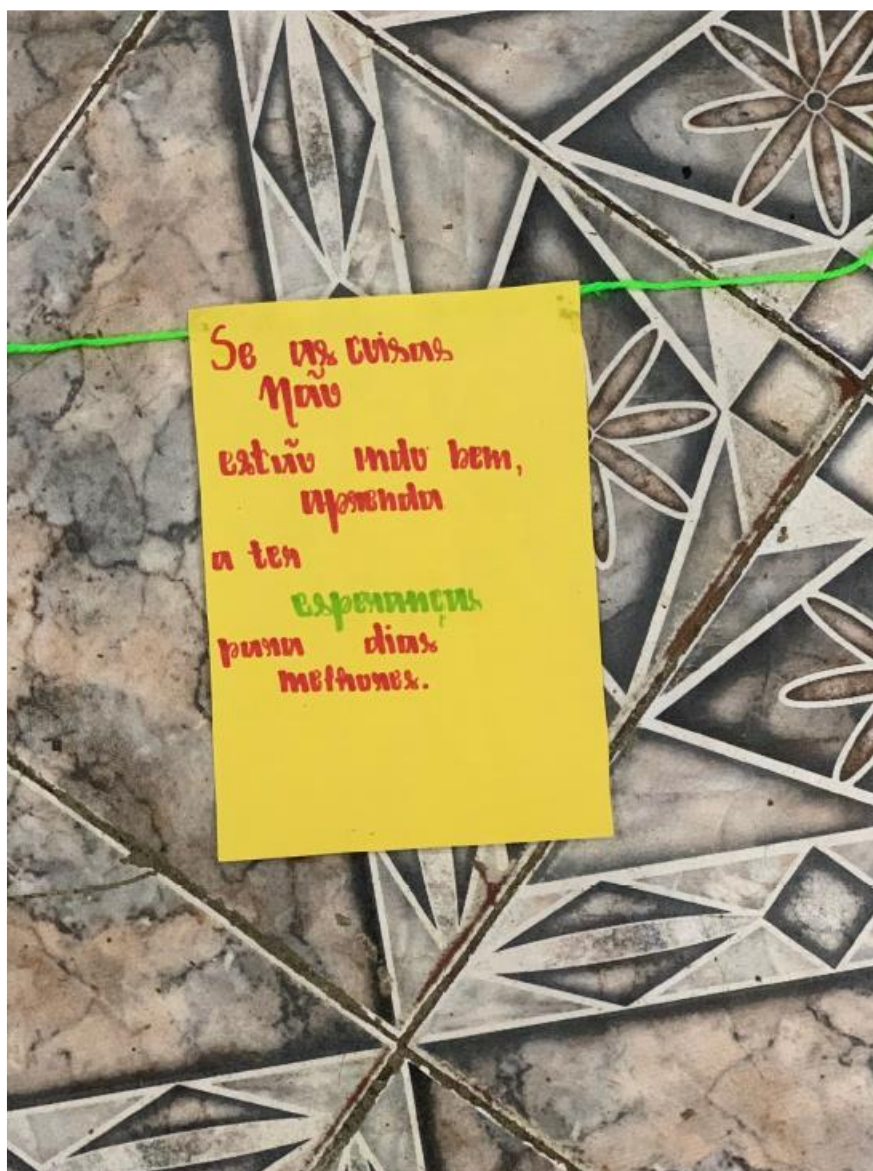 Se as coisas
Não
estão indo bem,
aprenda
a ter
esperanças
para dias
melhores.